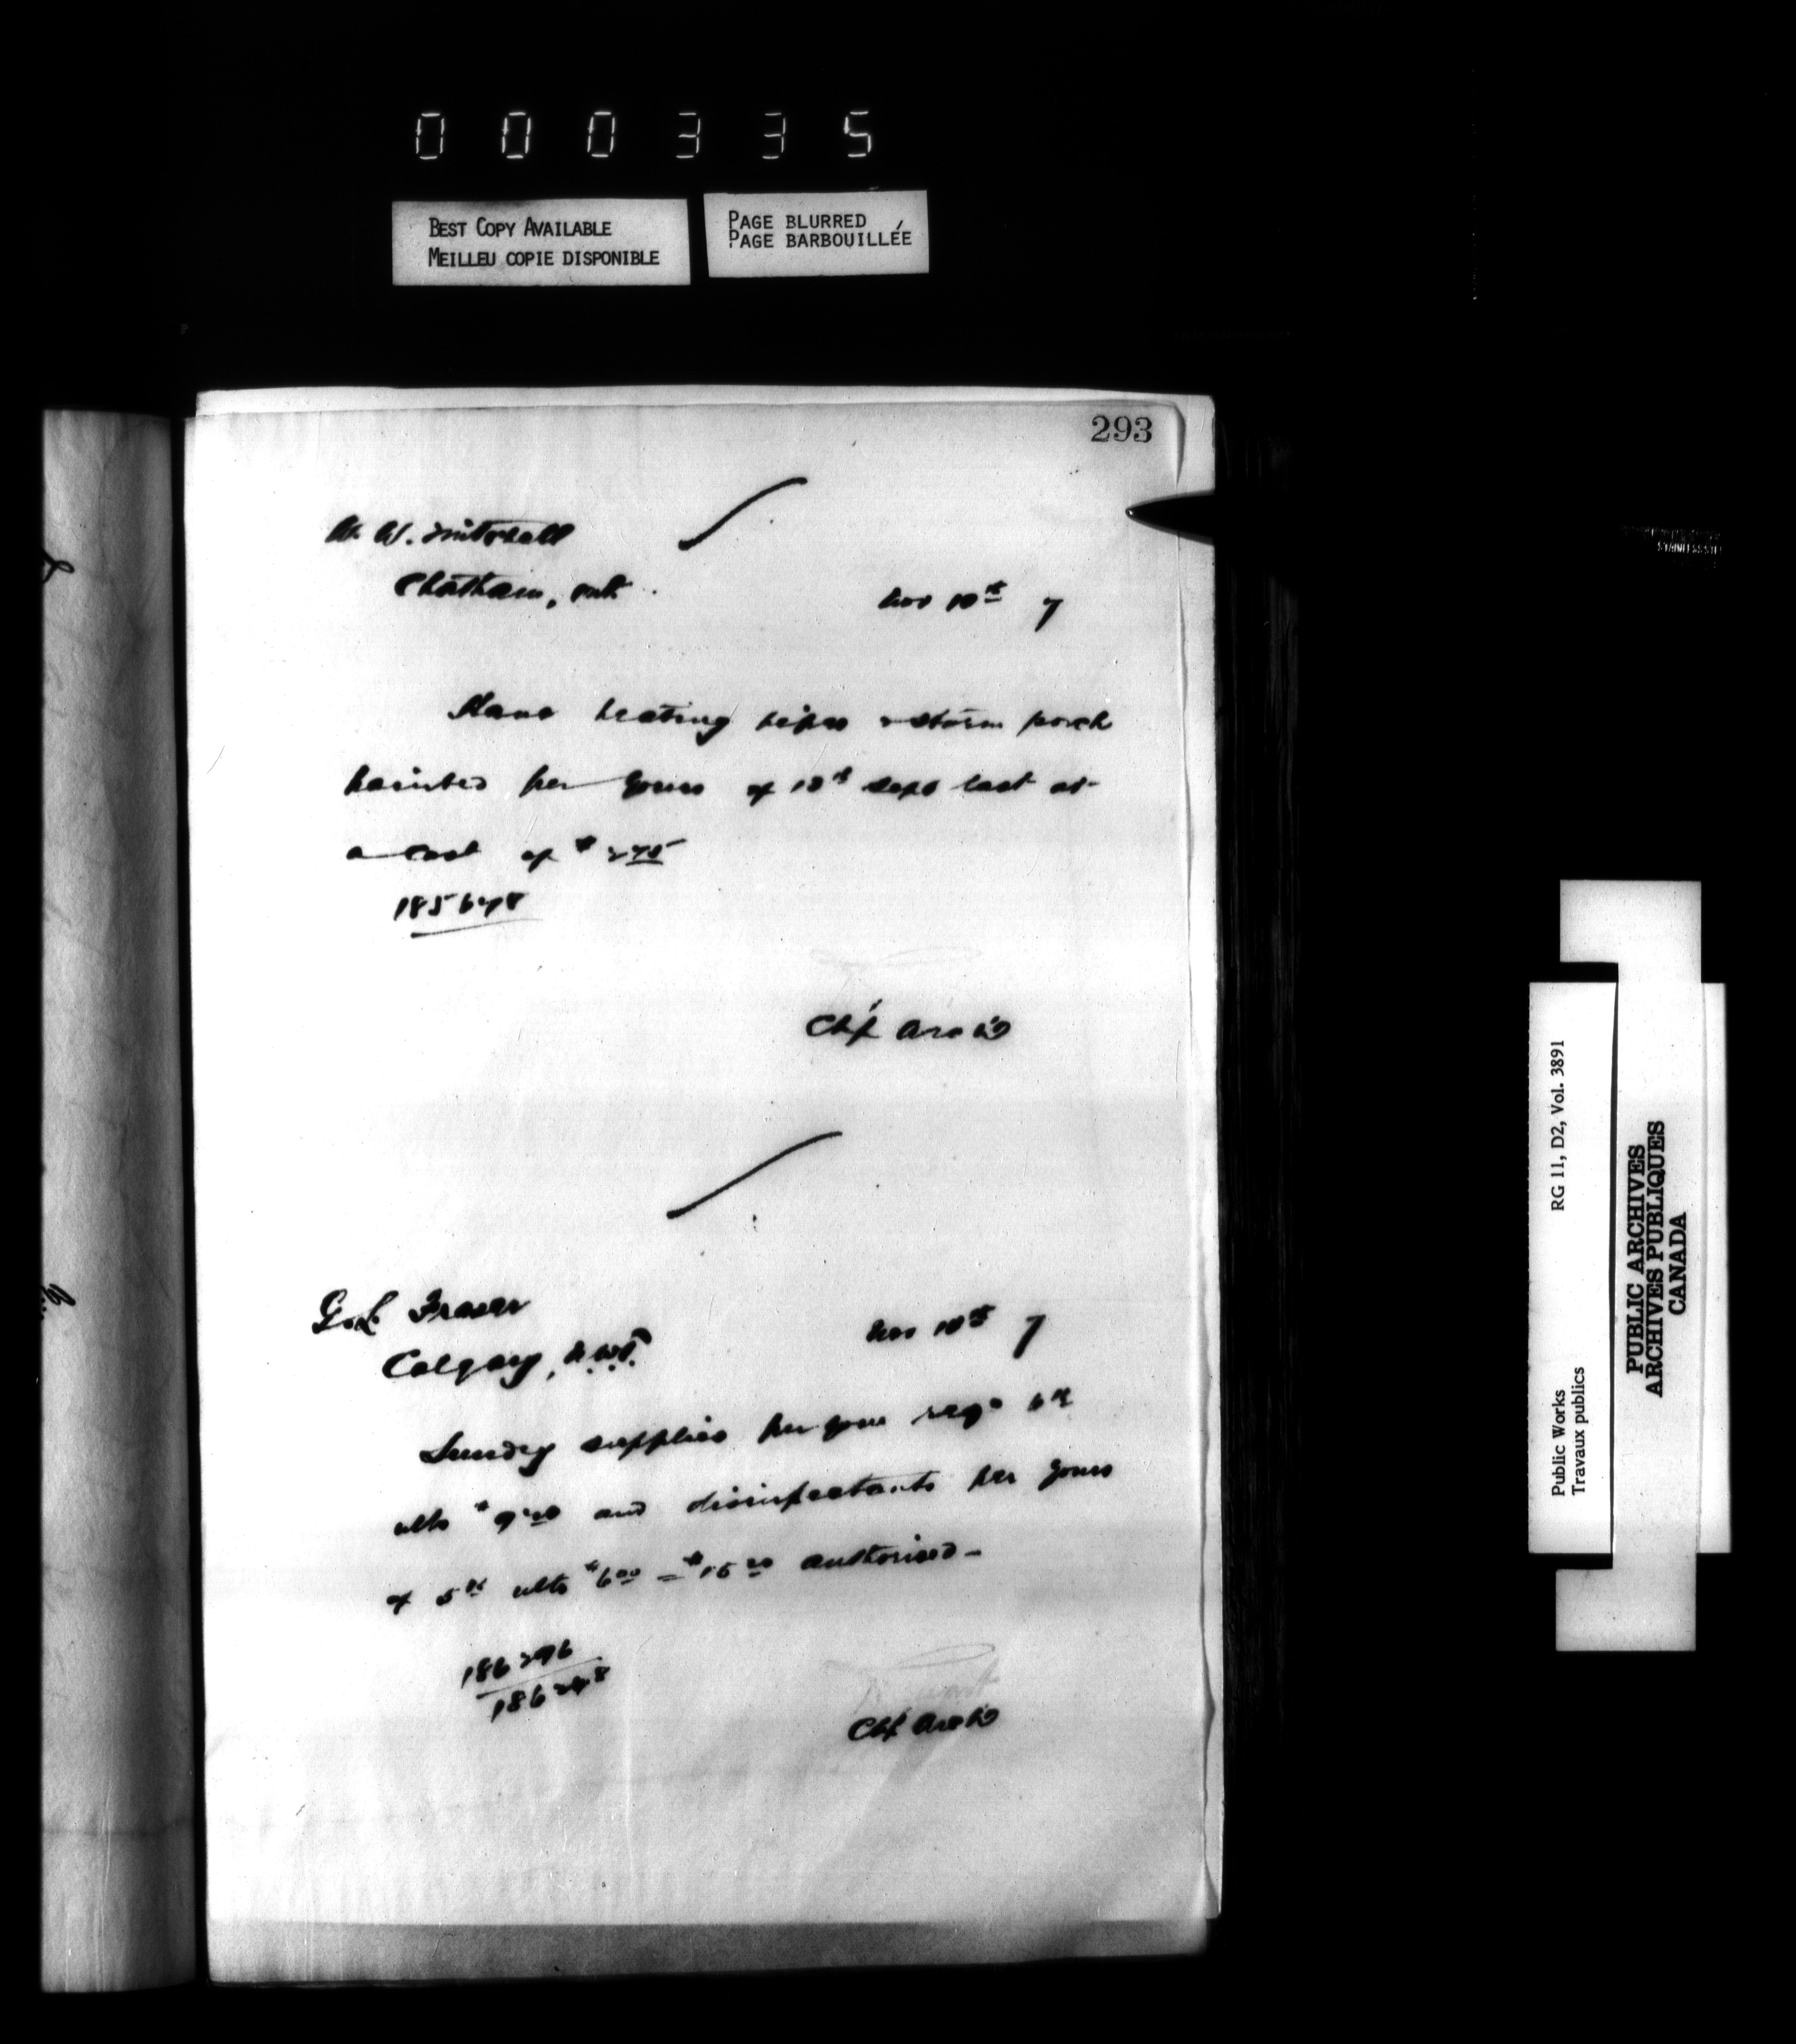 000335
BEST COPY AVAILABLE
MEILLEU COPIE DISPONIBLE
PAGE BLURRED
PAGE BARBOUILLÉE
293
W. W. Mitchell
Chatham, Ont.
Nov 10th 7
Have heating pipes & storm porch
painted per yours of 18th Sept last at
a cost of $
185648
Chf Arch
G. L. Fraser
Calgary, N.W.T.
Nov 10th 7
Sundry supplies per your reqn 6th
ulto $ and disinfectants per yours
of 5th ulto $6.00 = $15.20 authorised -
186296
Chf Arch
STAINLESS STE
RG 11, D2, Vol. 3891
Public Works
Travaux publics
PUBLIC ARCHIVES
ARCHIVES PUBLIQUES
CANADA